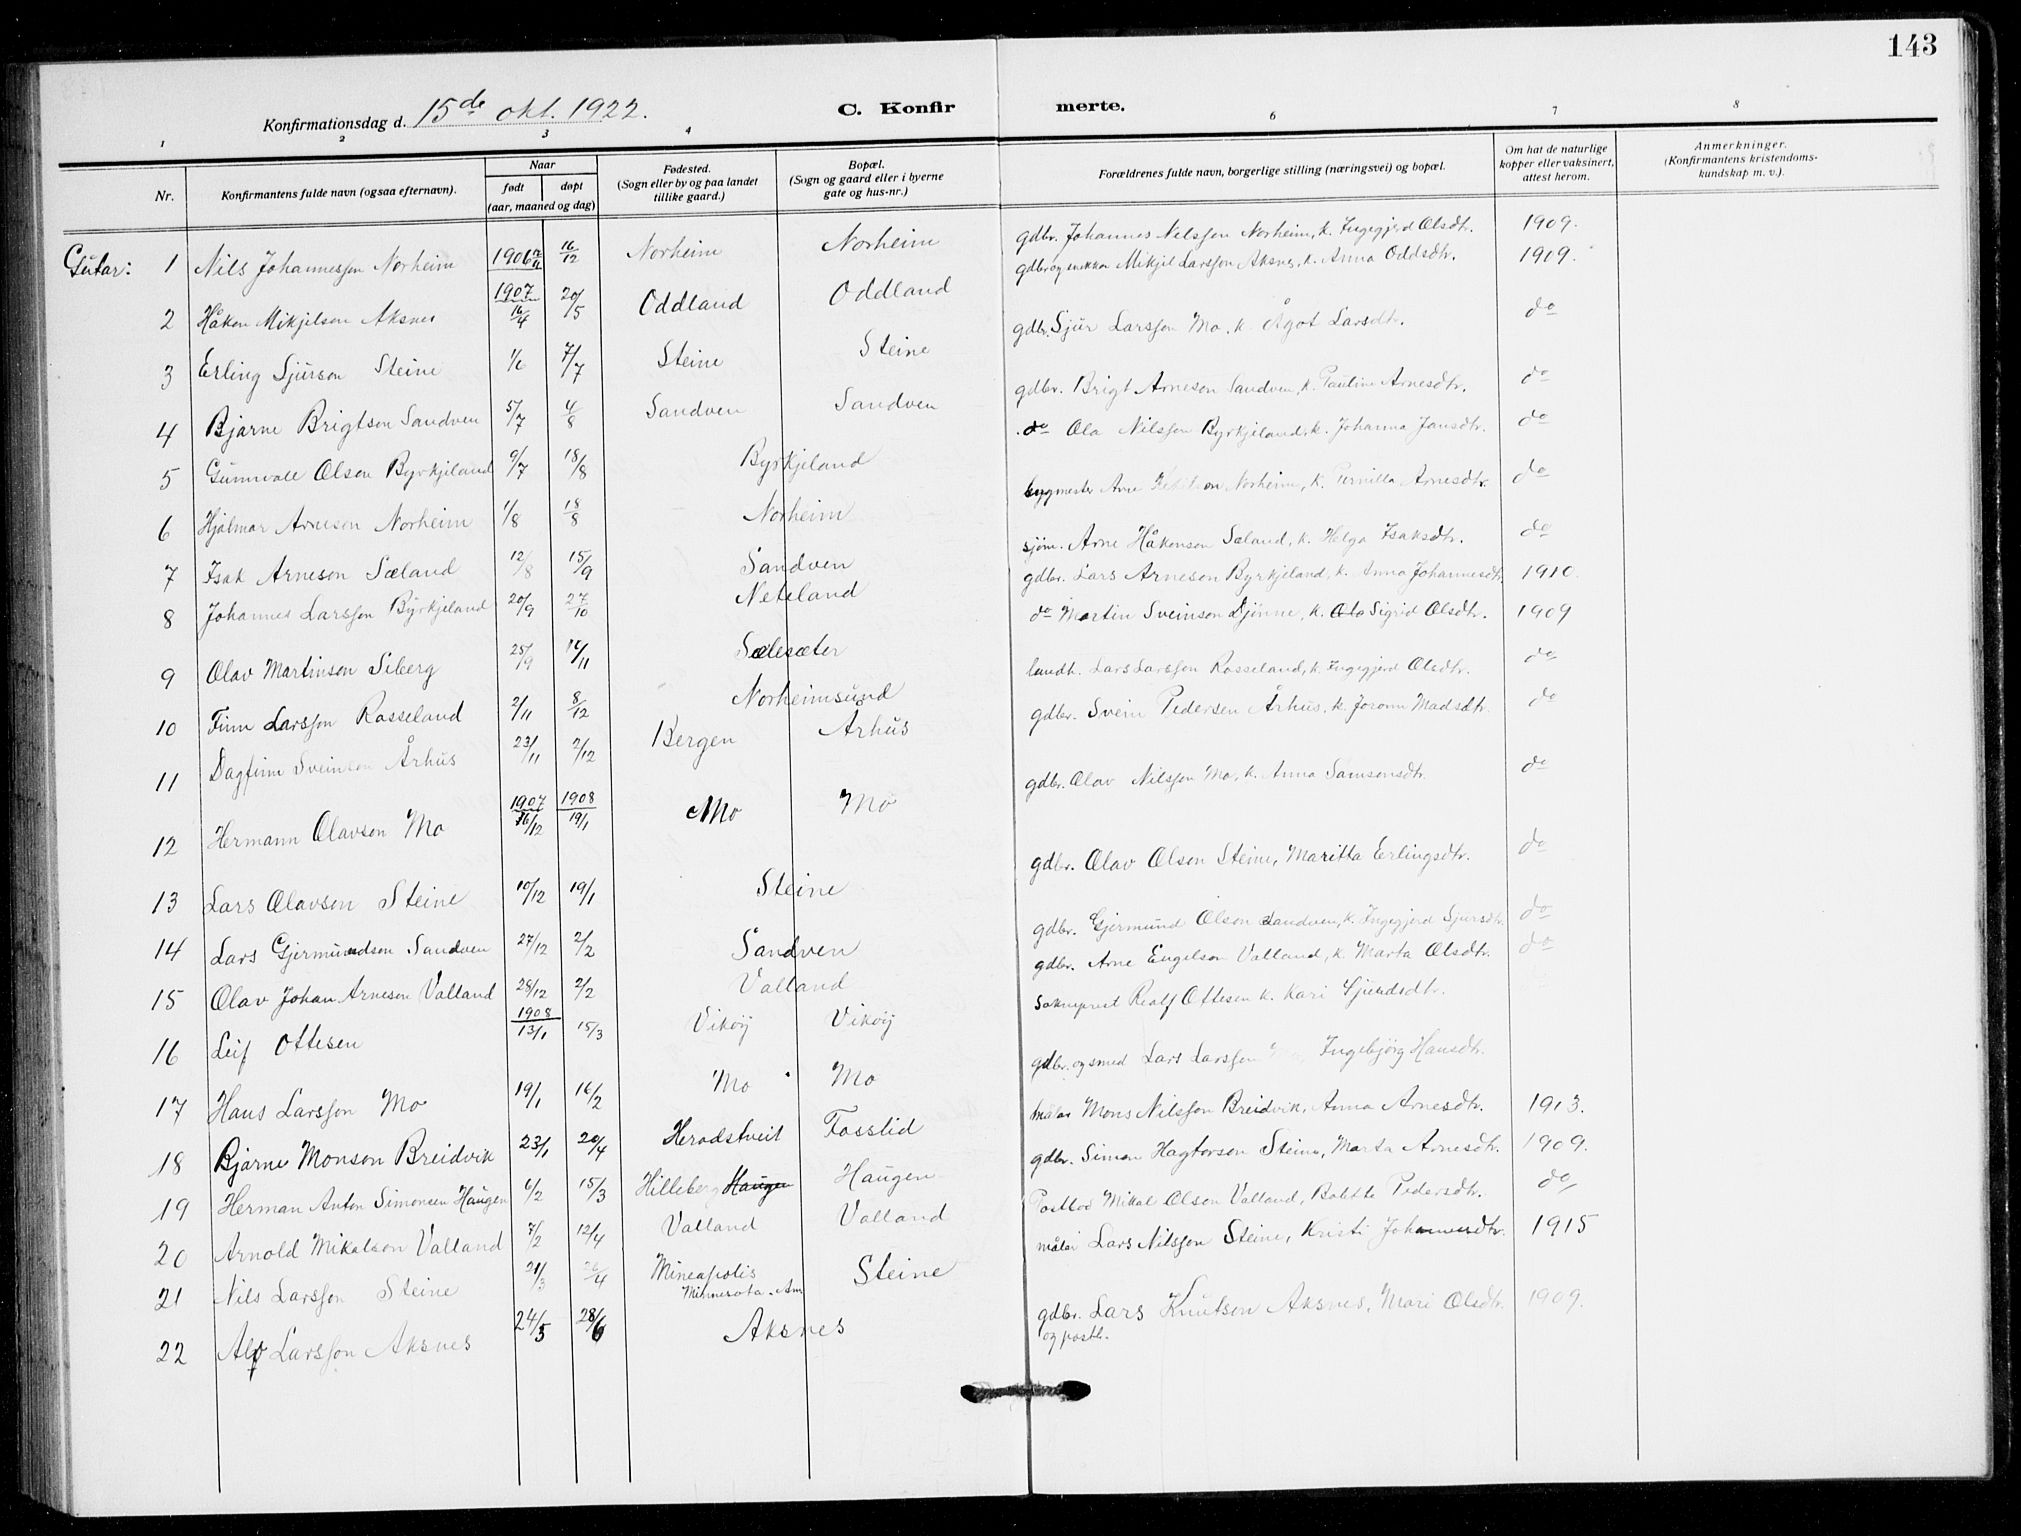 143
Konfirmationsdag d. 15de okt. 1922.
C. Konfirmerte.
1 2 3 4 6 7 8
Nr.
Konfirmantens fulde navn (ogsaa efternavn).
Naar
født døpt
(aar, maaned og dag)
Fødested.
(Sogn eller by og paa landet
tillike gaard.)
Bopæl.
(Sogn og gaard eller i byerne
gate og hus-nr.)
Forældrenes fulde navn, borgerlige stilling (næringsvei) og bopæl.
Om hat de naturlige
kopper eller vaksinert,
attest herom.
Anmerkninger.
(Konfirmantens kristendoms-
kundskap m. v.).
Gutar: 1 Nils Johannessen Norheim 1906 16/12 Norheim Norheim gdbr. Johannes Nilssen Norheim, k. Ingegjerd Olsdtr. 1909.
2 Håkon Mikjelson Aksnes 1907 16/4 20/5 Oddland Oddland gdbr og snekkar Mikjel Larsson Aksnes, k. Anna Oddsdtr. 1909.
3 Erling Sjurson Steine 1/6 7/7 Steine Steine gdbr. Sjur Larsson Mo, k. Ågot Larsdtr. do
4 Bjarne Brigtson Sandven 5/7 4/8 Sandven Sandven gdbr. Brigt Arneson Sandven, k. Pauline Arnesdtr. do
5 Gunnvald Olson Byrkjeland 9/7 18/8 Byrkjeland do Ola Nilsson Byrkjeland, k. Johanna Jansdtr. do
6 Hjalmar Arneson Norheim 1/8 18/8 Norheim bygmester Arne Norheim, k. Pernilla Arnesdtr. do
7 Isak Arneson Sæland 12/8 15/9 Sandven sjøm. Arne Håkonson Sæland, k. Helga Isaksdtr. do
8 Johannes Larsson Byrkjeland 20/9 27/10 Neteland gdbr. Lars Arneson Byrkjeland, k. Anna Johannesdtr 1910.
9 Olav Martinson Siberg 25/9 10/11 Sælesæter do Martin Sveinson Djønne, k. Sigrid Olsdtr. 1909
10 Finn Larsson Rosseland 2/11 8/12 Norheimsund landh. Lars Larsson Rosseland, k. Ingegjerd Olsdtr. do
11 Dagfinn Sveinson Århus 23/11 2/12 Bergen Århus gdbr. Svein Pedersen Århus, k. Joronn Madsdtr. do
12 Hermann Olavson Mo 1907 16/12 1908 19/1 Mo Mo gdbr. Olav Nilsson Mo, k. Anna Samsonsdtr. do
13 Lars Olavson Steine 10/12 19/1 Steine gdbr. Olav Olson Steine, Maritta Erlingsdtr. do
14 Lars Gjermundson Sandven 27/12 2/2 Sandven gdbr. Gjermund Olson Sandven, k. Ingegjerd Sjursdtr. do
15 Olav Johan Arneson Valland 28/12 2/2 Valland gdbr. Arne Engelson Valland, k. Marta Olsdtr. do
16 Leif Ottesen 1908 13/1 15/3 Vikøy Vikøy Sokneprest Realf Ottesen k. Kari Sjurdsdtr.
17 Hans Larsson Mo 19/1 16/2 Mo Mo gdbr. og smed Lars Larsson Mo, Ingebjørg Hansdtr.
18 Bjarne Monson Breidvik 23/1 20/4 Heradstveit Fosslid målar Mons Nilsson Breidvik, Anna Arnesdtr. 1913.
19 Herman Anton Simonsen Haugen 6/2 15/3 Hilleberg Haugen Haugen gdbr. Simon Hagtorson Steine, Marta Arnesdtr. 1909.
20 Arnold Mikalson Valland 7/2 12/4 Valland Valland Postbod Mikal Olson Valland, Bolette Pedersdtr. do
21 Nils Larsson Steine 21/3 26/4 Mineapolis Minnesota. Am Steine målar Lars Nilsson Steine, Kristi Johannesdtr. 1915
22 Alf Larsson Aksnes 24/5 28/6 Aksnes gdbr. Lars Knutson Aksnes, Mari Olsdtr. 1909.
og postb.